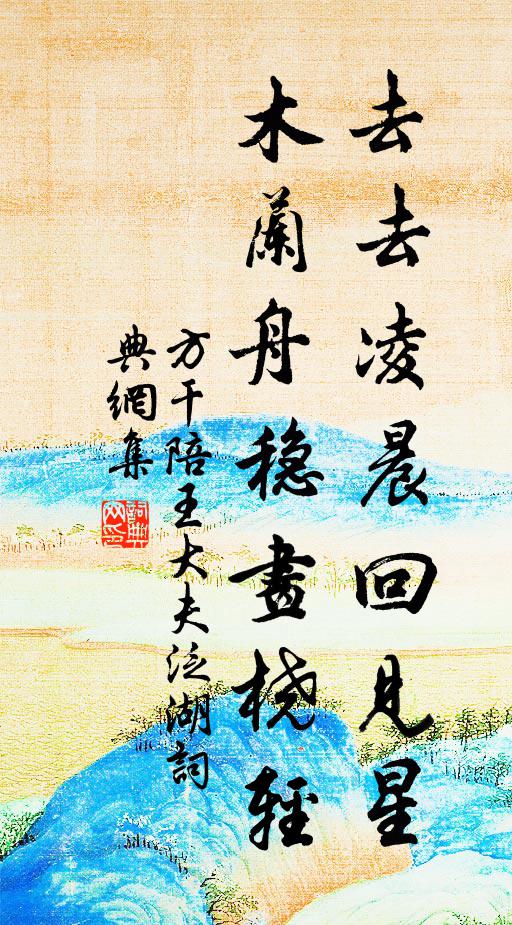 去去凌晨回見星
木蘭舟穩畫橈輕
方干陪王大夫泛湖詞
典網集
詞典
网印